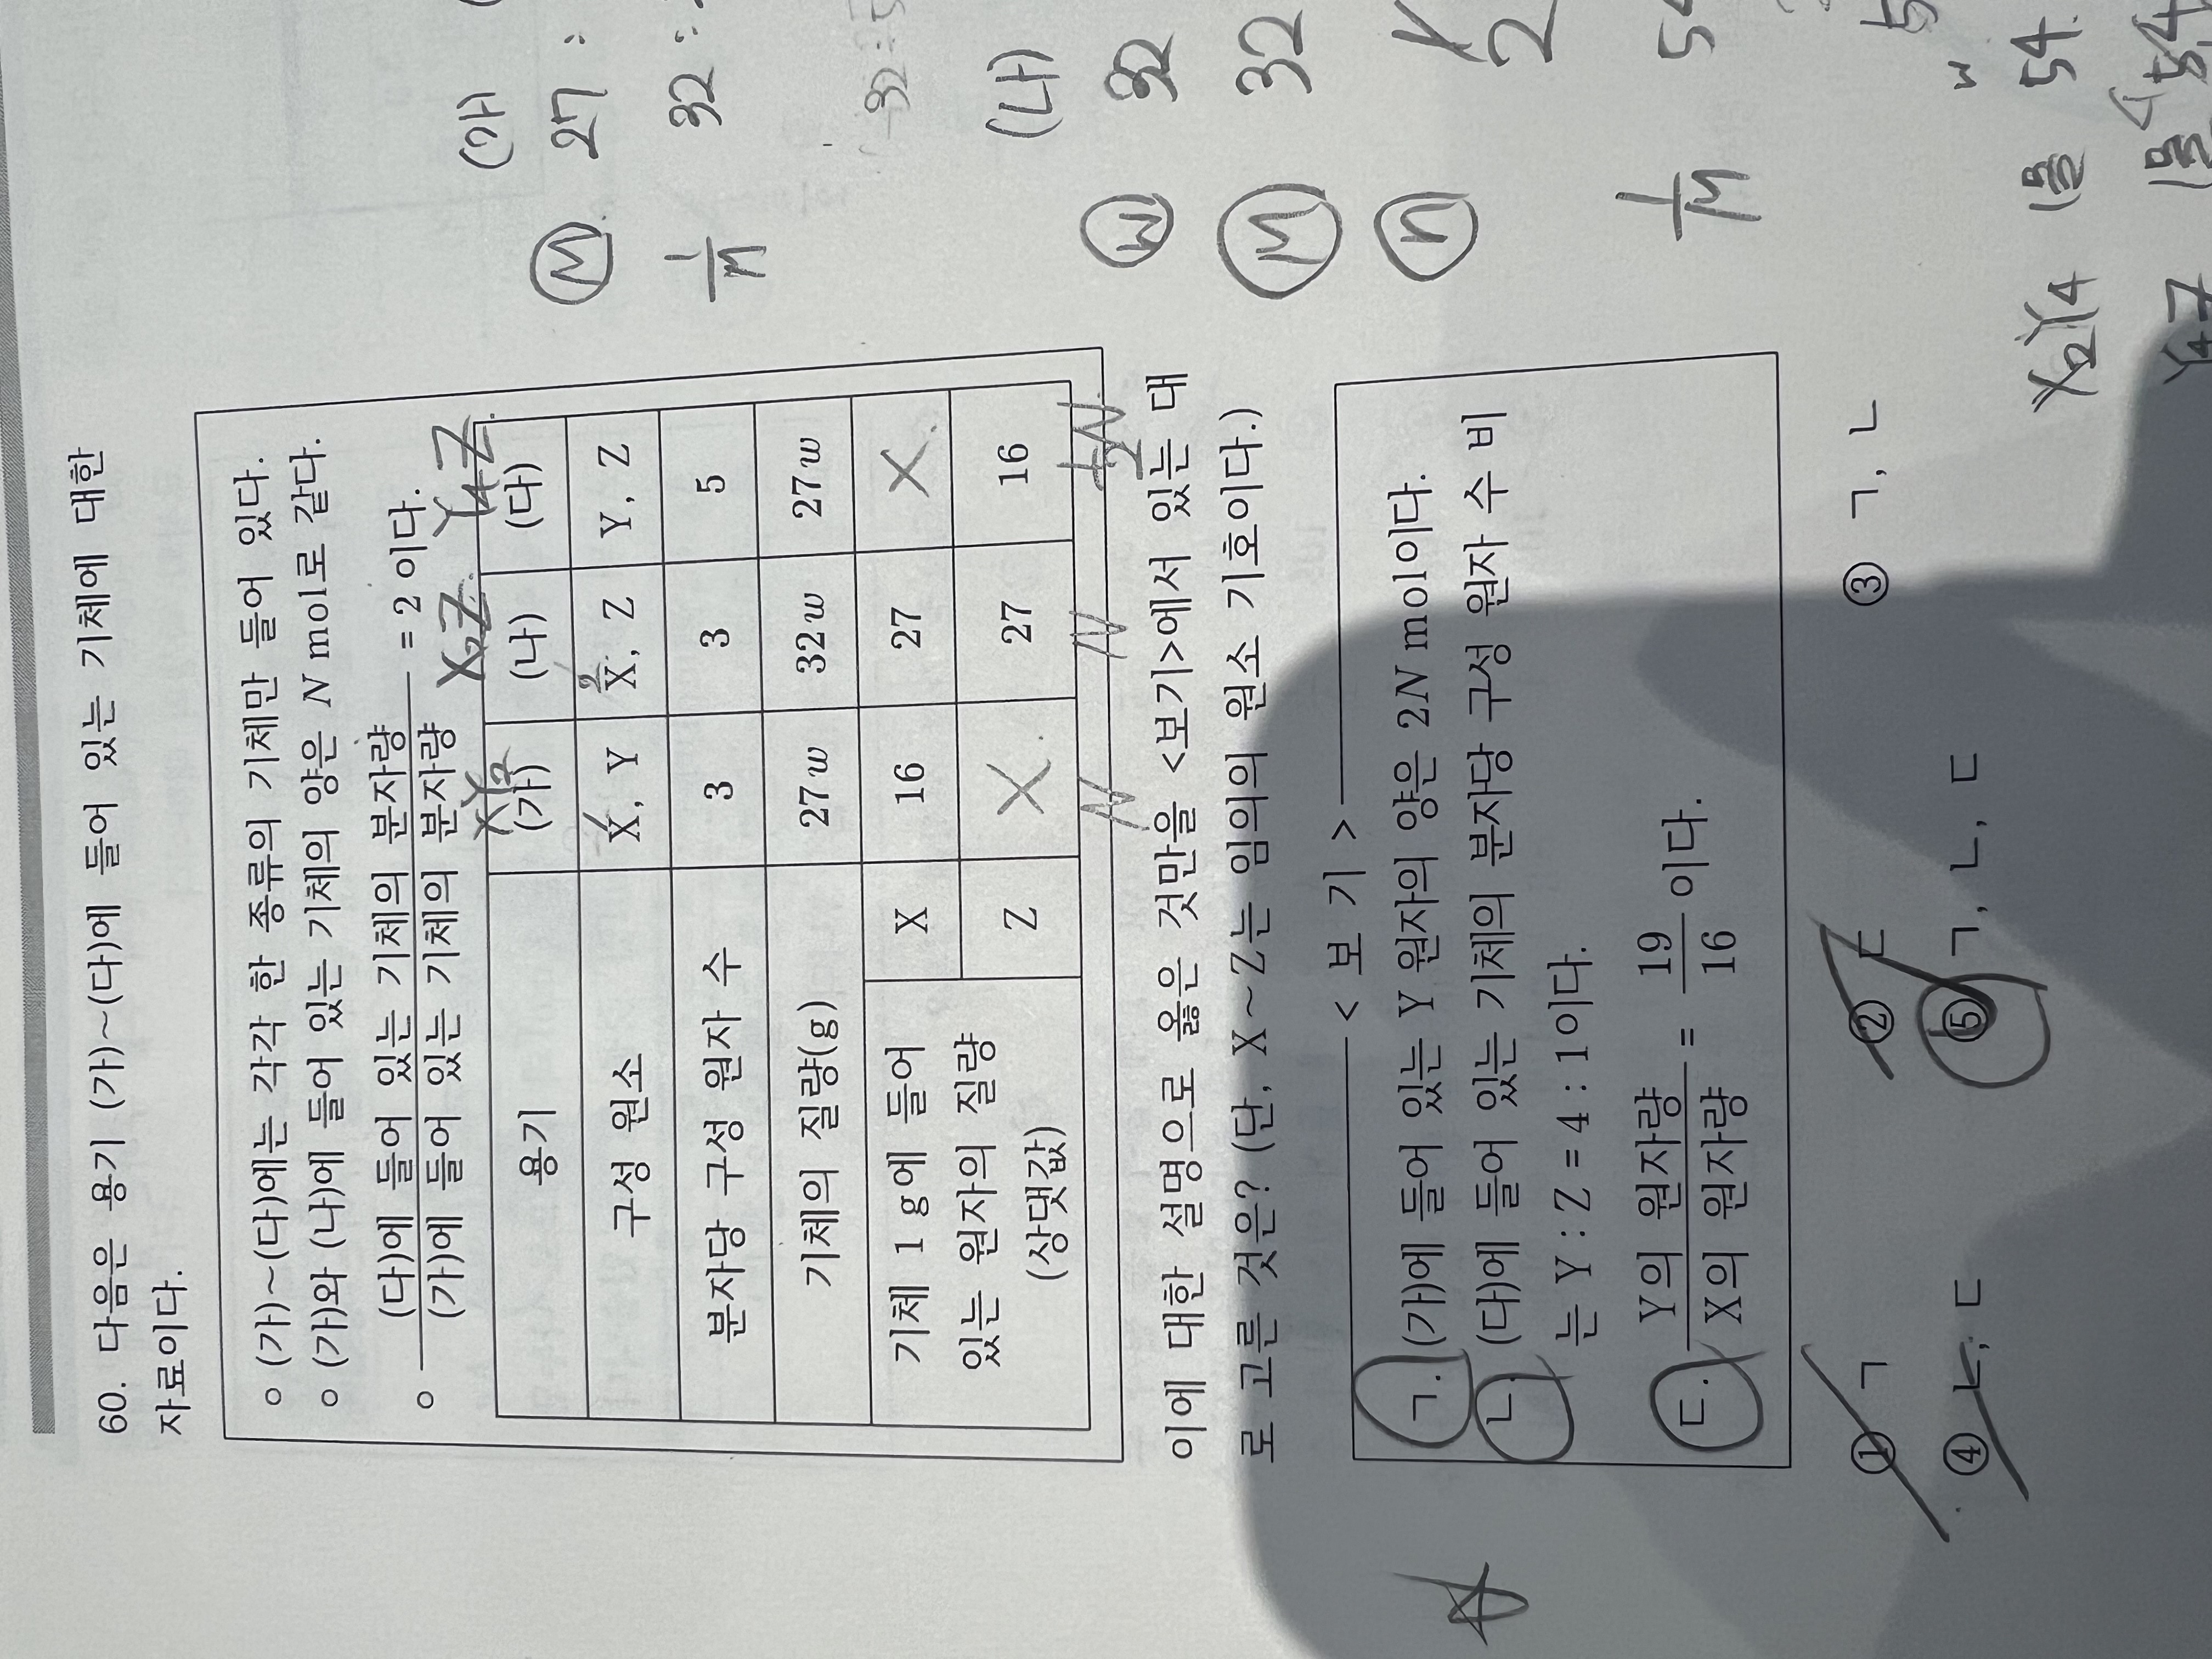 60. 다음은 용기 (가)~(다)에 들어 있는 기체에 대한
자료이다.
○ (가)~(다)에는 각각 한 종류의 기체만 들어 있다.
○ (가)와 (나)에 들어 있는 기체의 양은 N mol로 같다.
○ (다)에 들어 있는 기체의 분자량 / (가)에 들어 있는 기체의 분자량 = 2 이다.
XY2 X2Z Y4Z
용기 (가) (나) (다)
구성 원소 X, Y X, Z Y, Z
2
분자당 구성 원자 수 3 3 5
기체의 질량(g) 27w 32w 27w
기체 1 g에 들어 있는 원자의 질량 (상댓값) X 16 27 X
Z X 27 16
N N ½N
이에 대한 설명으로 옳은 것만을 <보기>에서 있는 대
로 고른 것은? (단, X~Z는 임의의 원소 기호이다.)
< 보 기 >
ㄱ. (가)에 들어 있는 Y 원자의 양은 2N mol이다.
ㄴ. (다)에 들어 있는 기체의 분자당 구성 원자 수 비
는 Y : Z = 4 : 1이다.
ㄷ. Y의 원자량 / X의 원자량 = 19/16 이다.
① ㄱ ② ㄷ ③ ㄱ, ㄴ
④ ㄴ, ㄷ ⑤ ㄱ, ㄴ, ㄷ
(가)
M 27 :
1/M 32 :
(나)
w 32
M 32
n
2
1/M
w
X2Y4 1몰 54
Y4Z 1몰